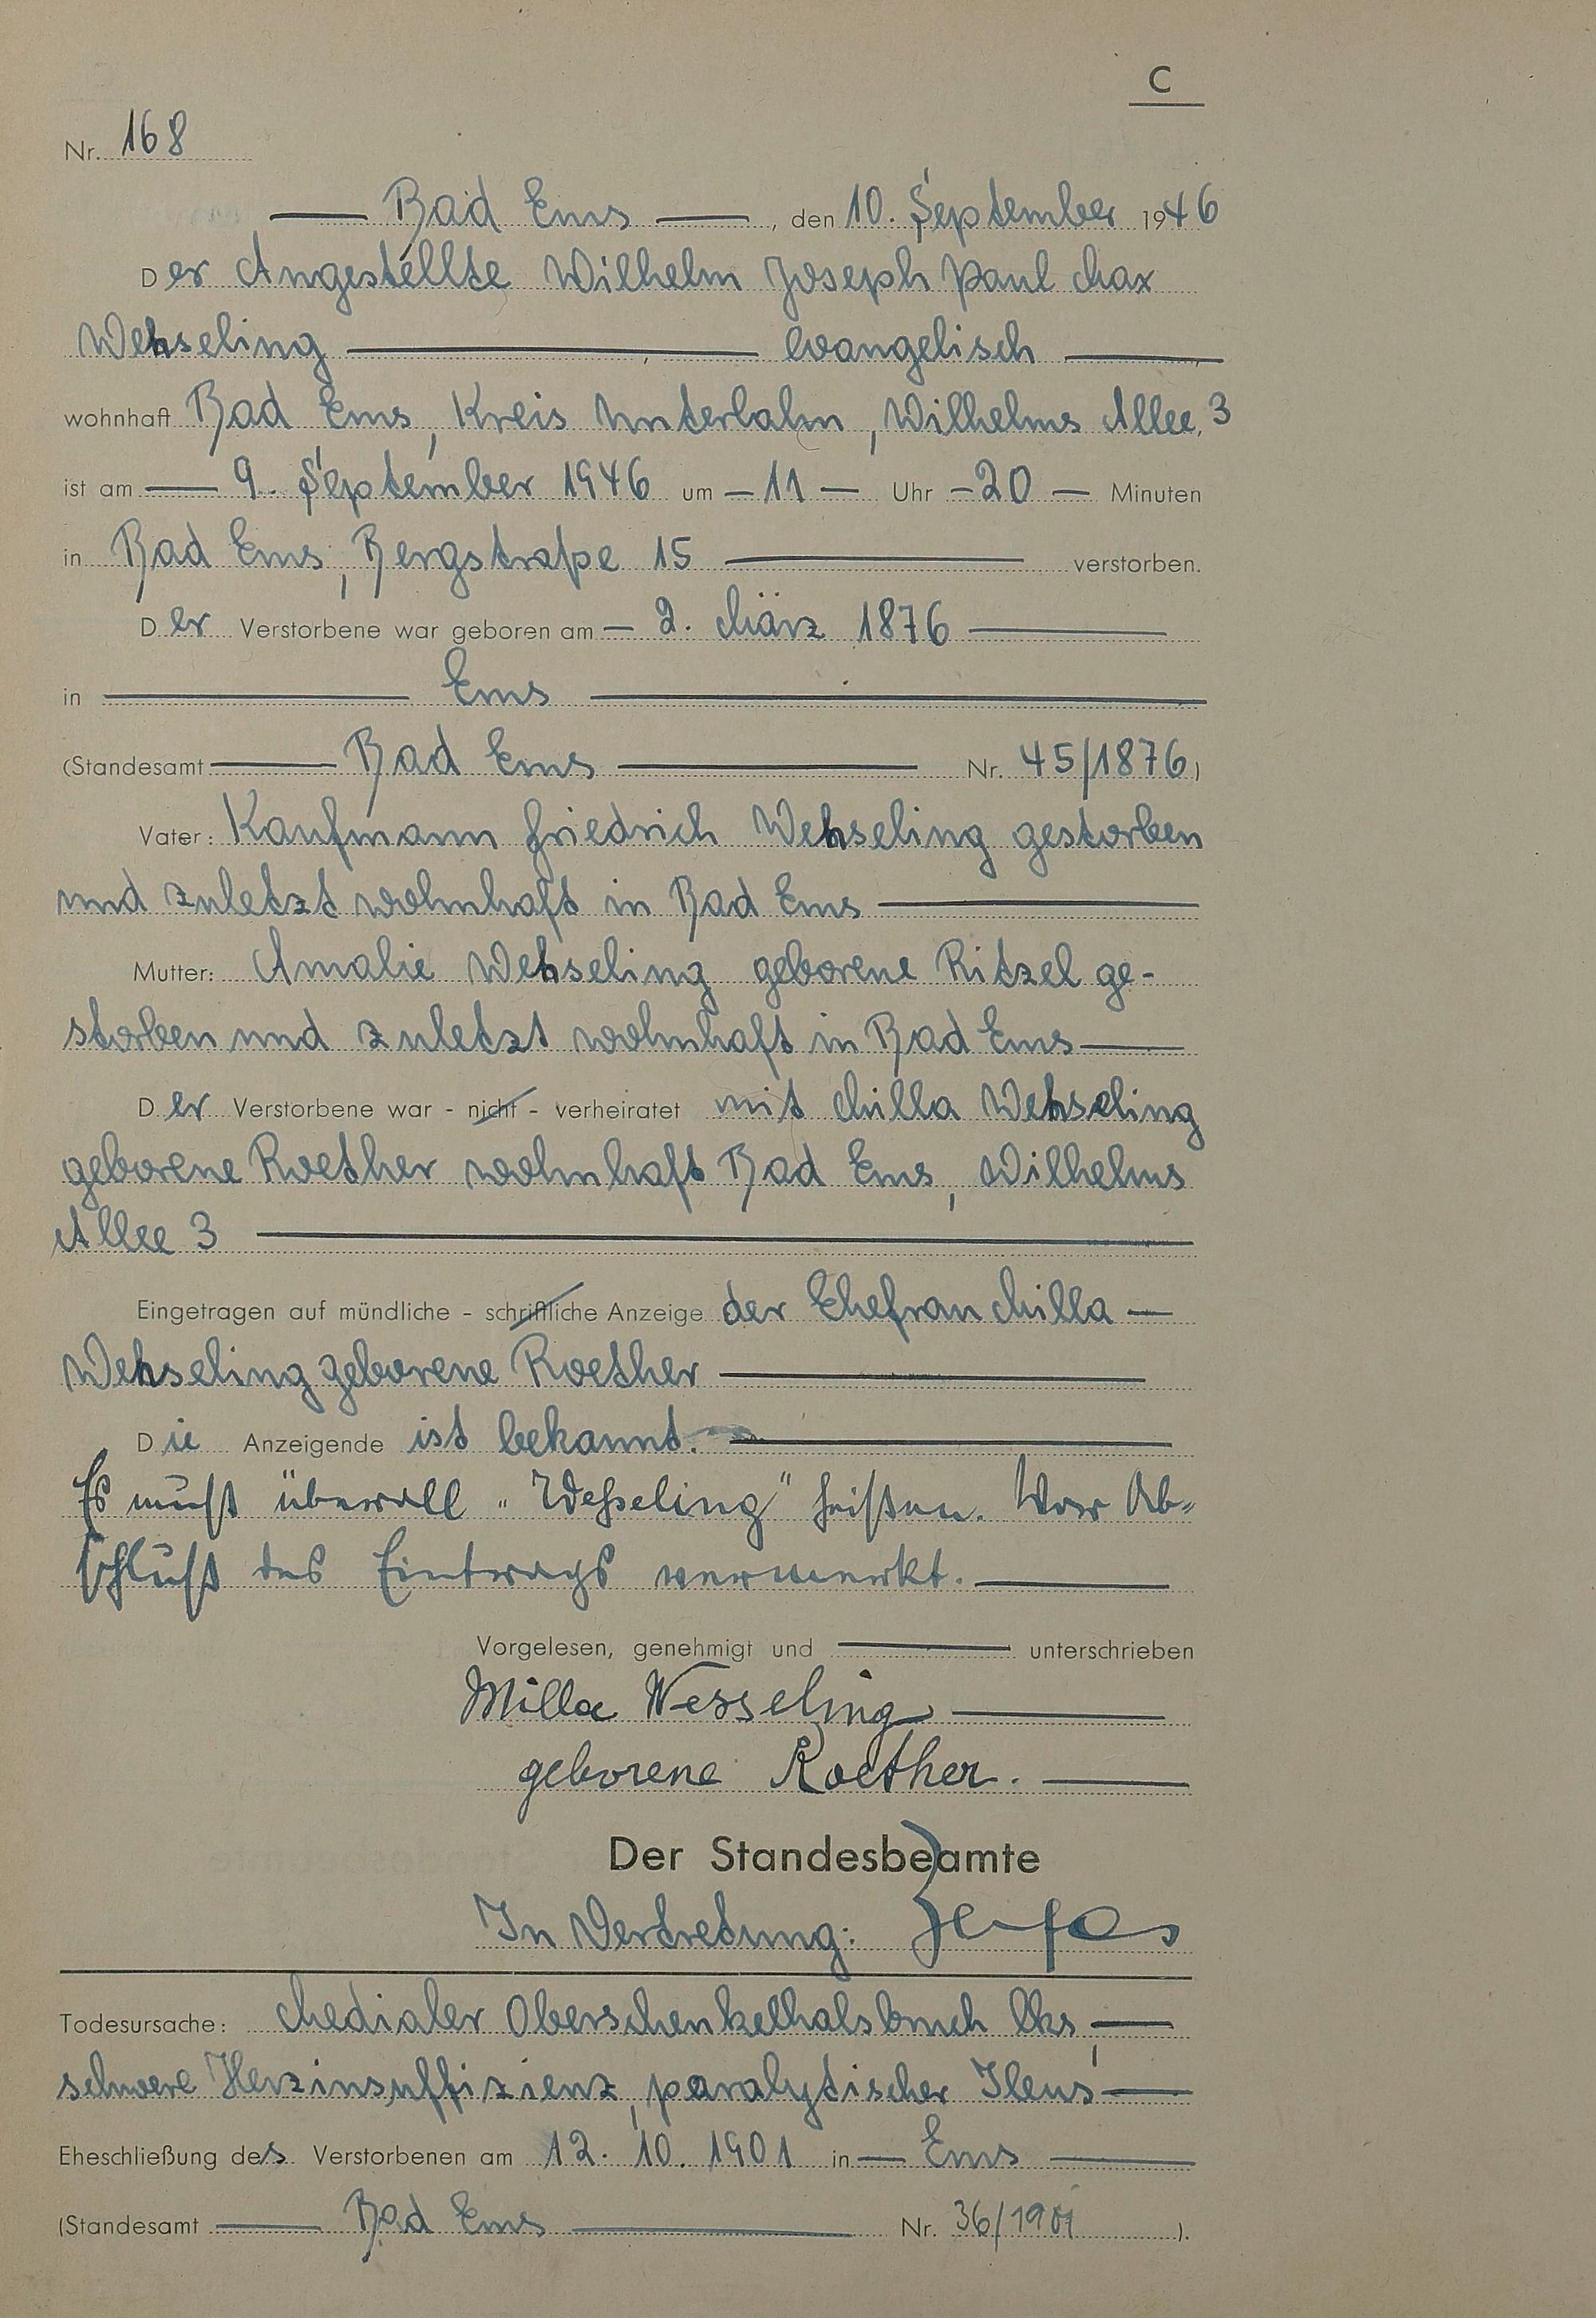 C
Nr. 168
Bad Ems, den 10. September 1946
Der Angestellte Wilhelm Joseph Paul Max
Wehseling evangelisch
wohnhaft Bad Ems, Kreis Unterlahn, Wilhelms Allee 3
ist am 9. September 1946 um - 11 - Uhr - 20 - Minuten
in Bad Ems, Bergstraße 15 verstorben.
Der Verstorbene war geboren am - 2. März 1876
in Ems
(Standesamt Bad Ems Nr. 45/1876)
Vater: Kaufmann Friedrich Wehseling gestorben
und zuletzt wohnhaft in Bad Ems
Mutter: Amalie Wehseling geborene Ritzel ge-
storben und zuletzt wohnhaft in Bad Ems
Der Verstorbene war - nicht - verheiratet mit Milla Wehseling
geborene Roether wohnhaft Bad Ems, Wilhelms
Allee 3
Eingetragen auf mündliche - schriftliche Anzeige der Ehefrau Milla
Wehseling geborene Roether
Die Anzeigende ist bekannt.
Es muß überall „Weßeling" heißen. Vor Ab-
schluß des Eintrags vermerkt.
Vorgelesen, genehmigt und unterschrieben
Milla Wesseling
geborene Roether.
Der Standesbeamte
In Vertretung:
Todesursache: Medialer Oberschenkelhalsbruch lks,
schwere Herzinsuffizienz, paralytischer Ileus
Eheschließung des Verstorbenen am 12. 10. 1901 in Ems
(Standesamt Bad Ems Nr. 36/1901).